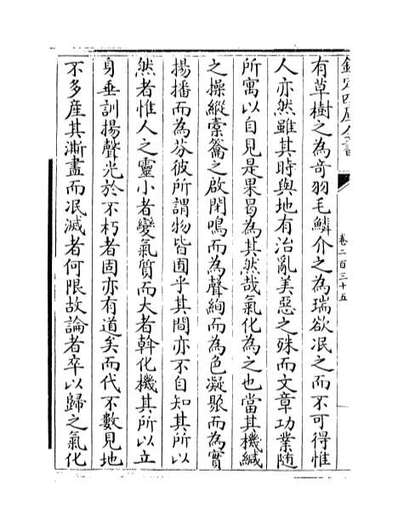 欽定四庫全書
卷二百三十五
有草樹之為奇羽毛鱗介之為瑞欲泯之而不可得惟
人亦然雖其時與地有治亂美惡之殊而文章功業隨
所寓以自見是果曷為其然哉氣化為之也當其機緘
之操縱橐籥之啟閉鳴而為聲絢而為色凝聚而為實
揚播而為芬彼所謂物皆囿乎其間亦不自知其所以
然者惟人之靈小者變氣質而大者斡化機其所以立
身垂訓揚聲光於不朽者固亦有道矣而代不數見地
不多産其澌盡而泯滅者何限故論者卒以歸之氣化